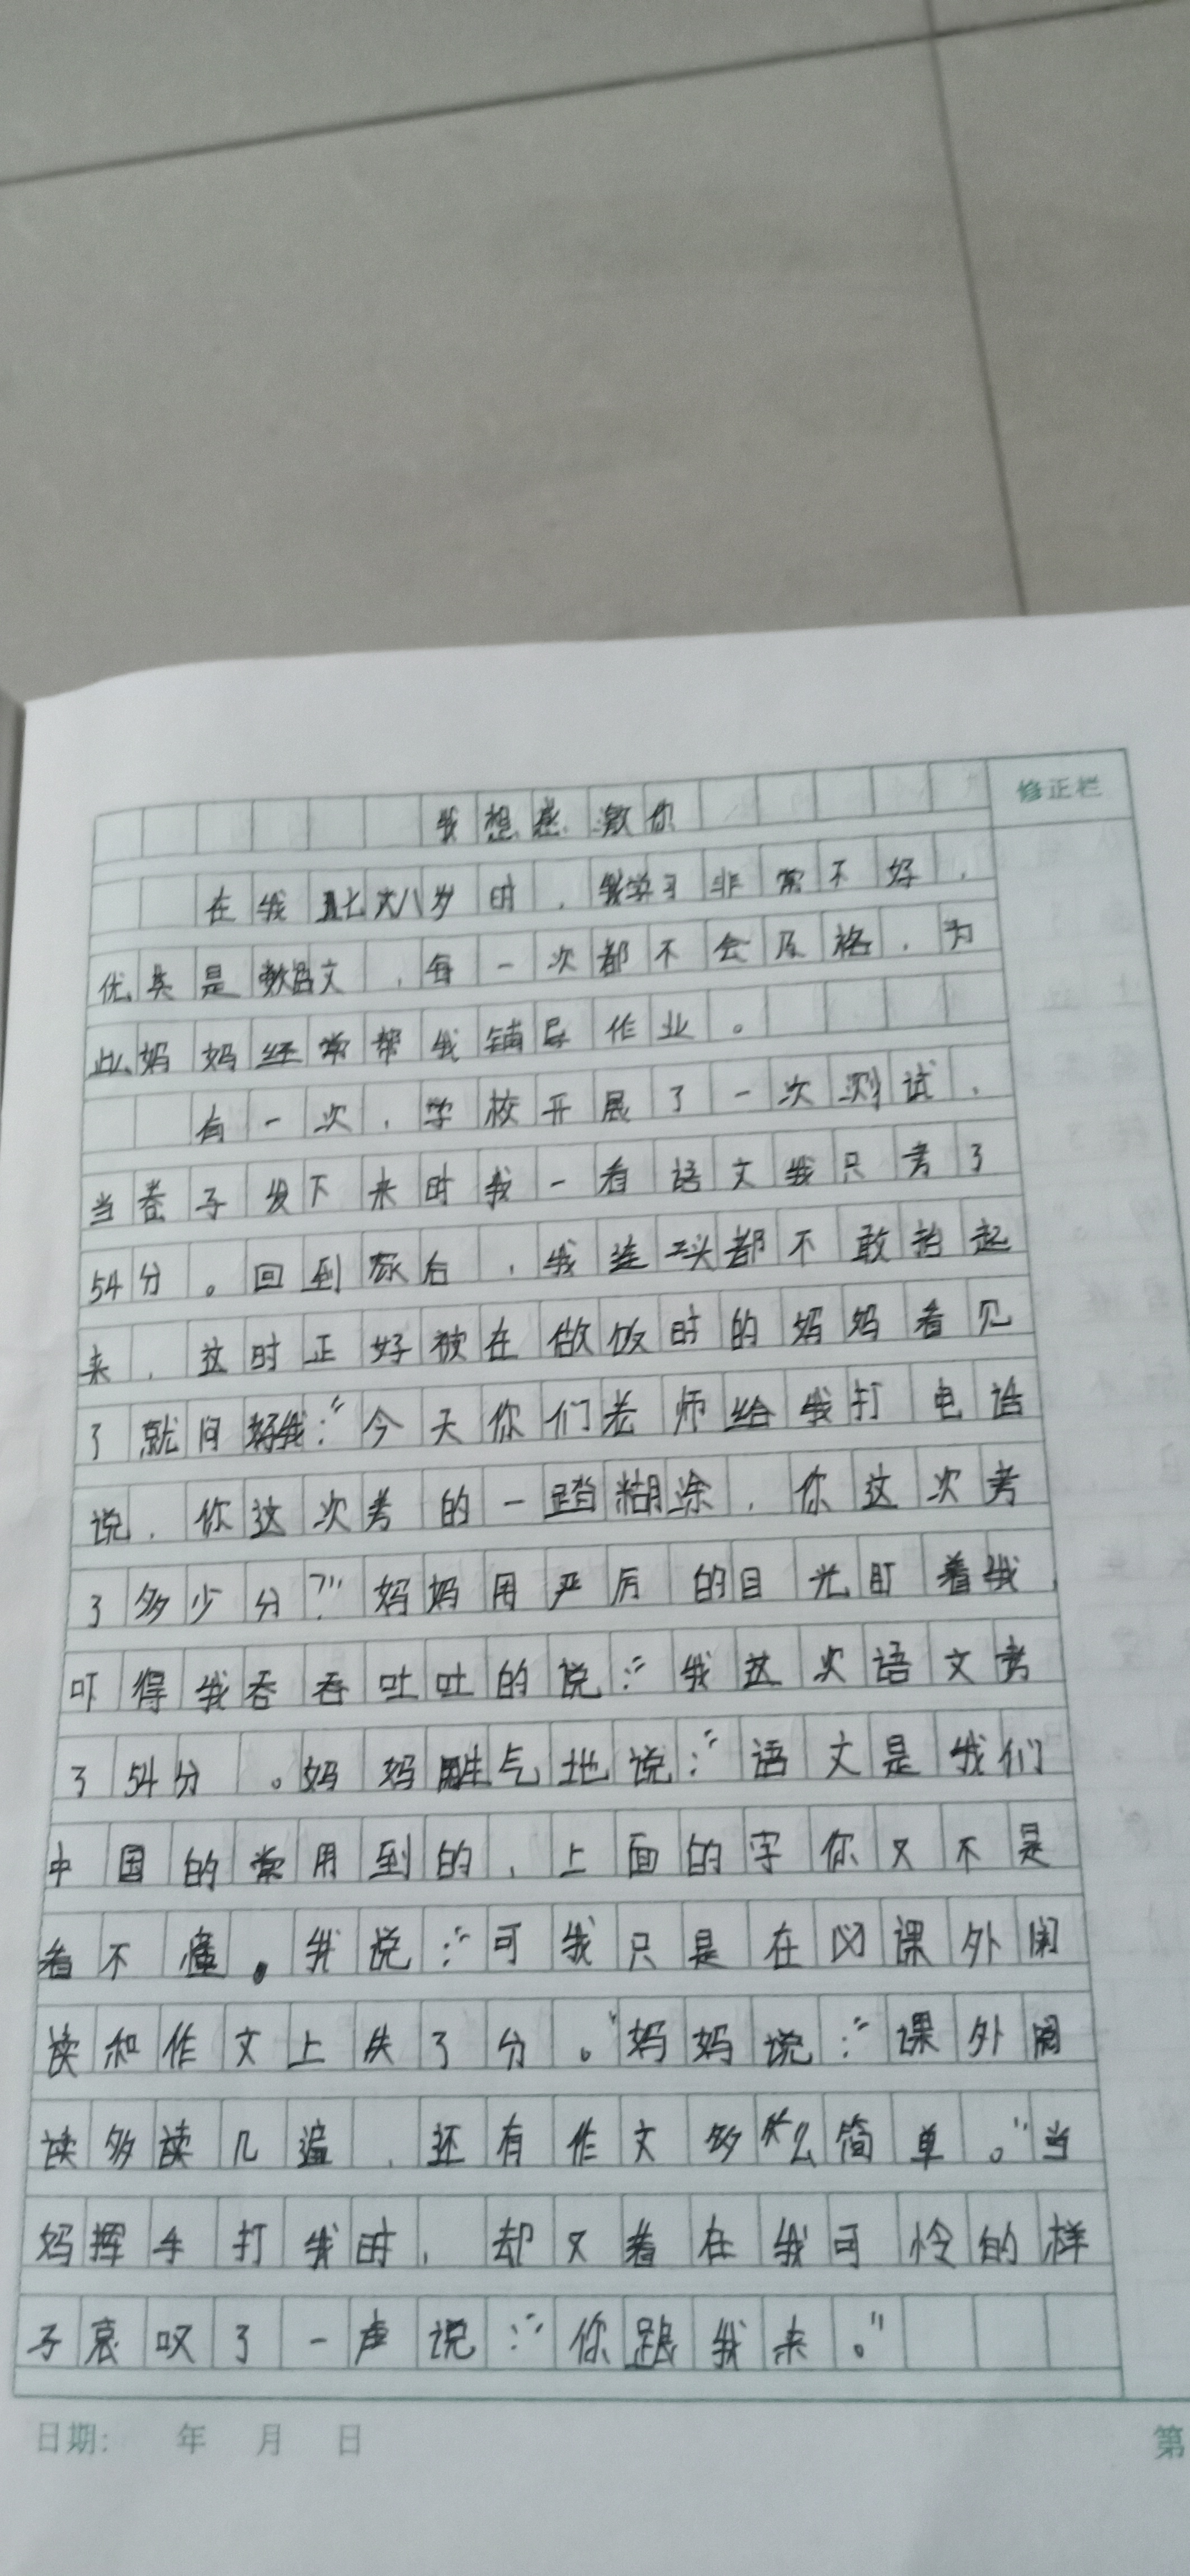 我想感激你
修正栏
在我七八岁时,我学习非常不好,
优其是语文,每一次都不会及格,为
此妈妈经常帮我铺导作业。
有一次,学校开展了一次测试,
当卷子发下来时我一看语文我只考了
54分。回到家后,我连头都不敢抬起
来,这时正好被在做饭时的妈妈看见
了就问我:“今天你们老师给我打电话
说,你这次考的一踏糊涂,你这次考
了多少分?”妈妈用严厉的目光盯着我,
吓得我吞吞吐吐的说:“我这次语文考
了54分。妈妈生气地说:“语文是我们
中国的常用到的,上面的字你又不是
看不懂。我说:“可我只是在课外阅
读和作文上失了分。”妈妈说:“课外阅
读多读几遍,还有作文多么简单。”当
妈挥手打我时,却又看在我可怜的样
子哀叹了一声说:“你跟我来。”
日期: 年 月 日
第